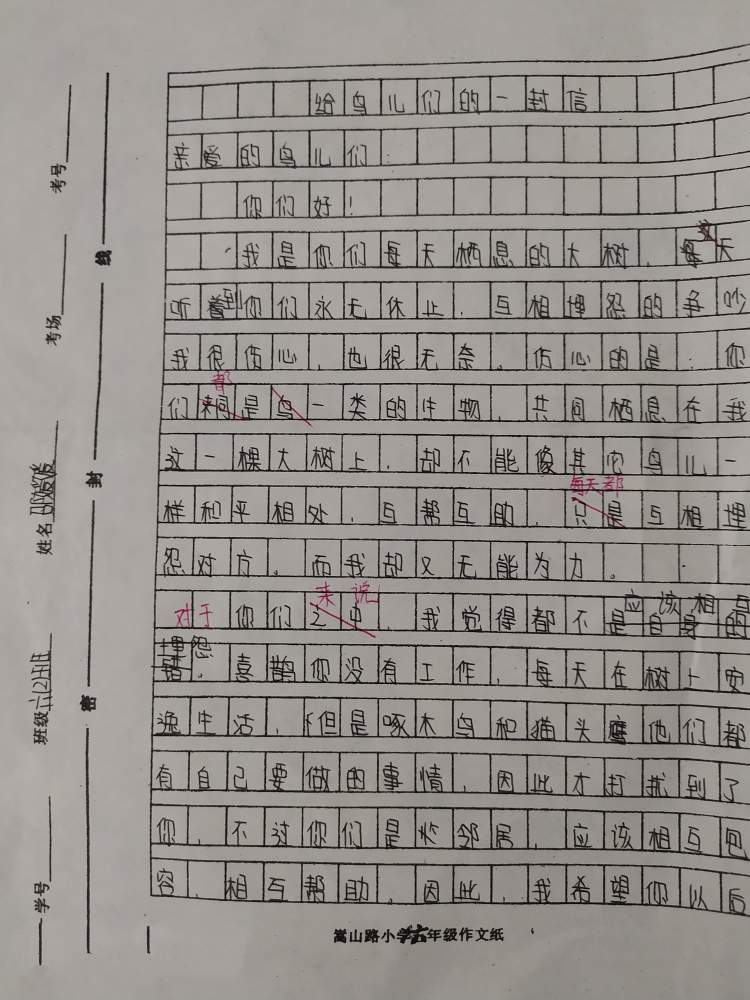 给鸟儿们的一封信
亲爱的鸟儿们:
你们好!
我是你们每天栖息的大树,每天
听到你们永无休止,互相埋怨的争吵
我很伤心,也很无奈。伤心的是:你
都
们是鸟一类的生物,共同栖息在我
这一棵大树上,却不能像其它鸟儿一
每天都
样和平相处,互帮互助,只是互相埋
怨对方。而我却又无能为力。
来说 应该相互
对于你们之中,我觉得都不是自身的
埋怨
错。喜鹊你没有工作,每天在树上安
逸生活,但是啄木鸟和猫头鹰他们都
有自己要做的事情,因此才打扰到了
你,不过你们是邻居,应该相互包
容,相互帮助,因此,我希望你以后
嵩山路小学六年级作文纸
学号
班级六(2)班
姓名
考场
考号
密封线